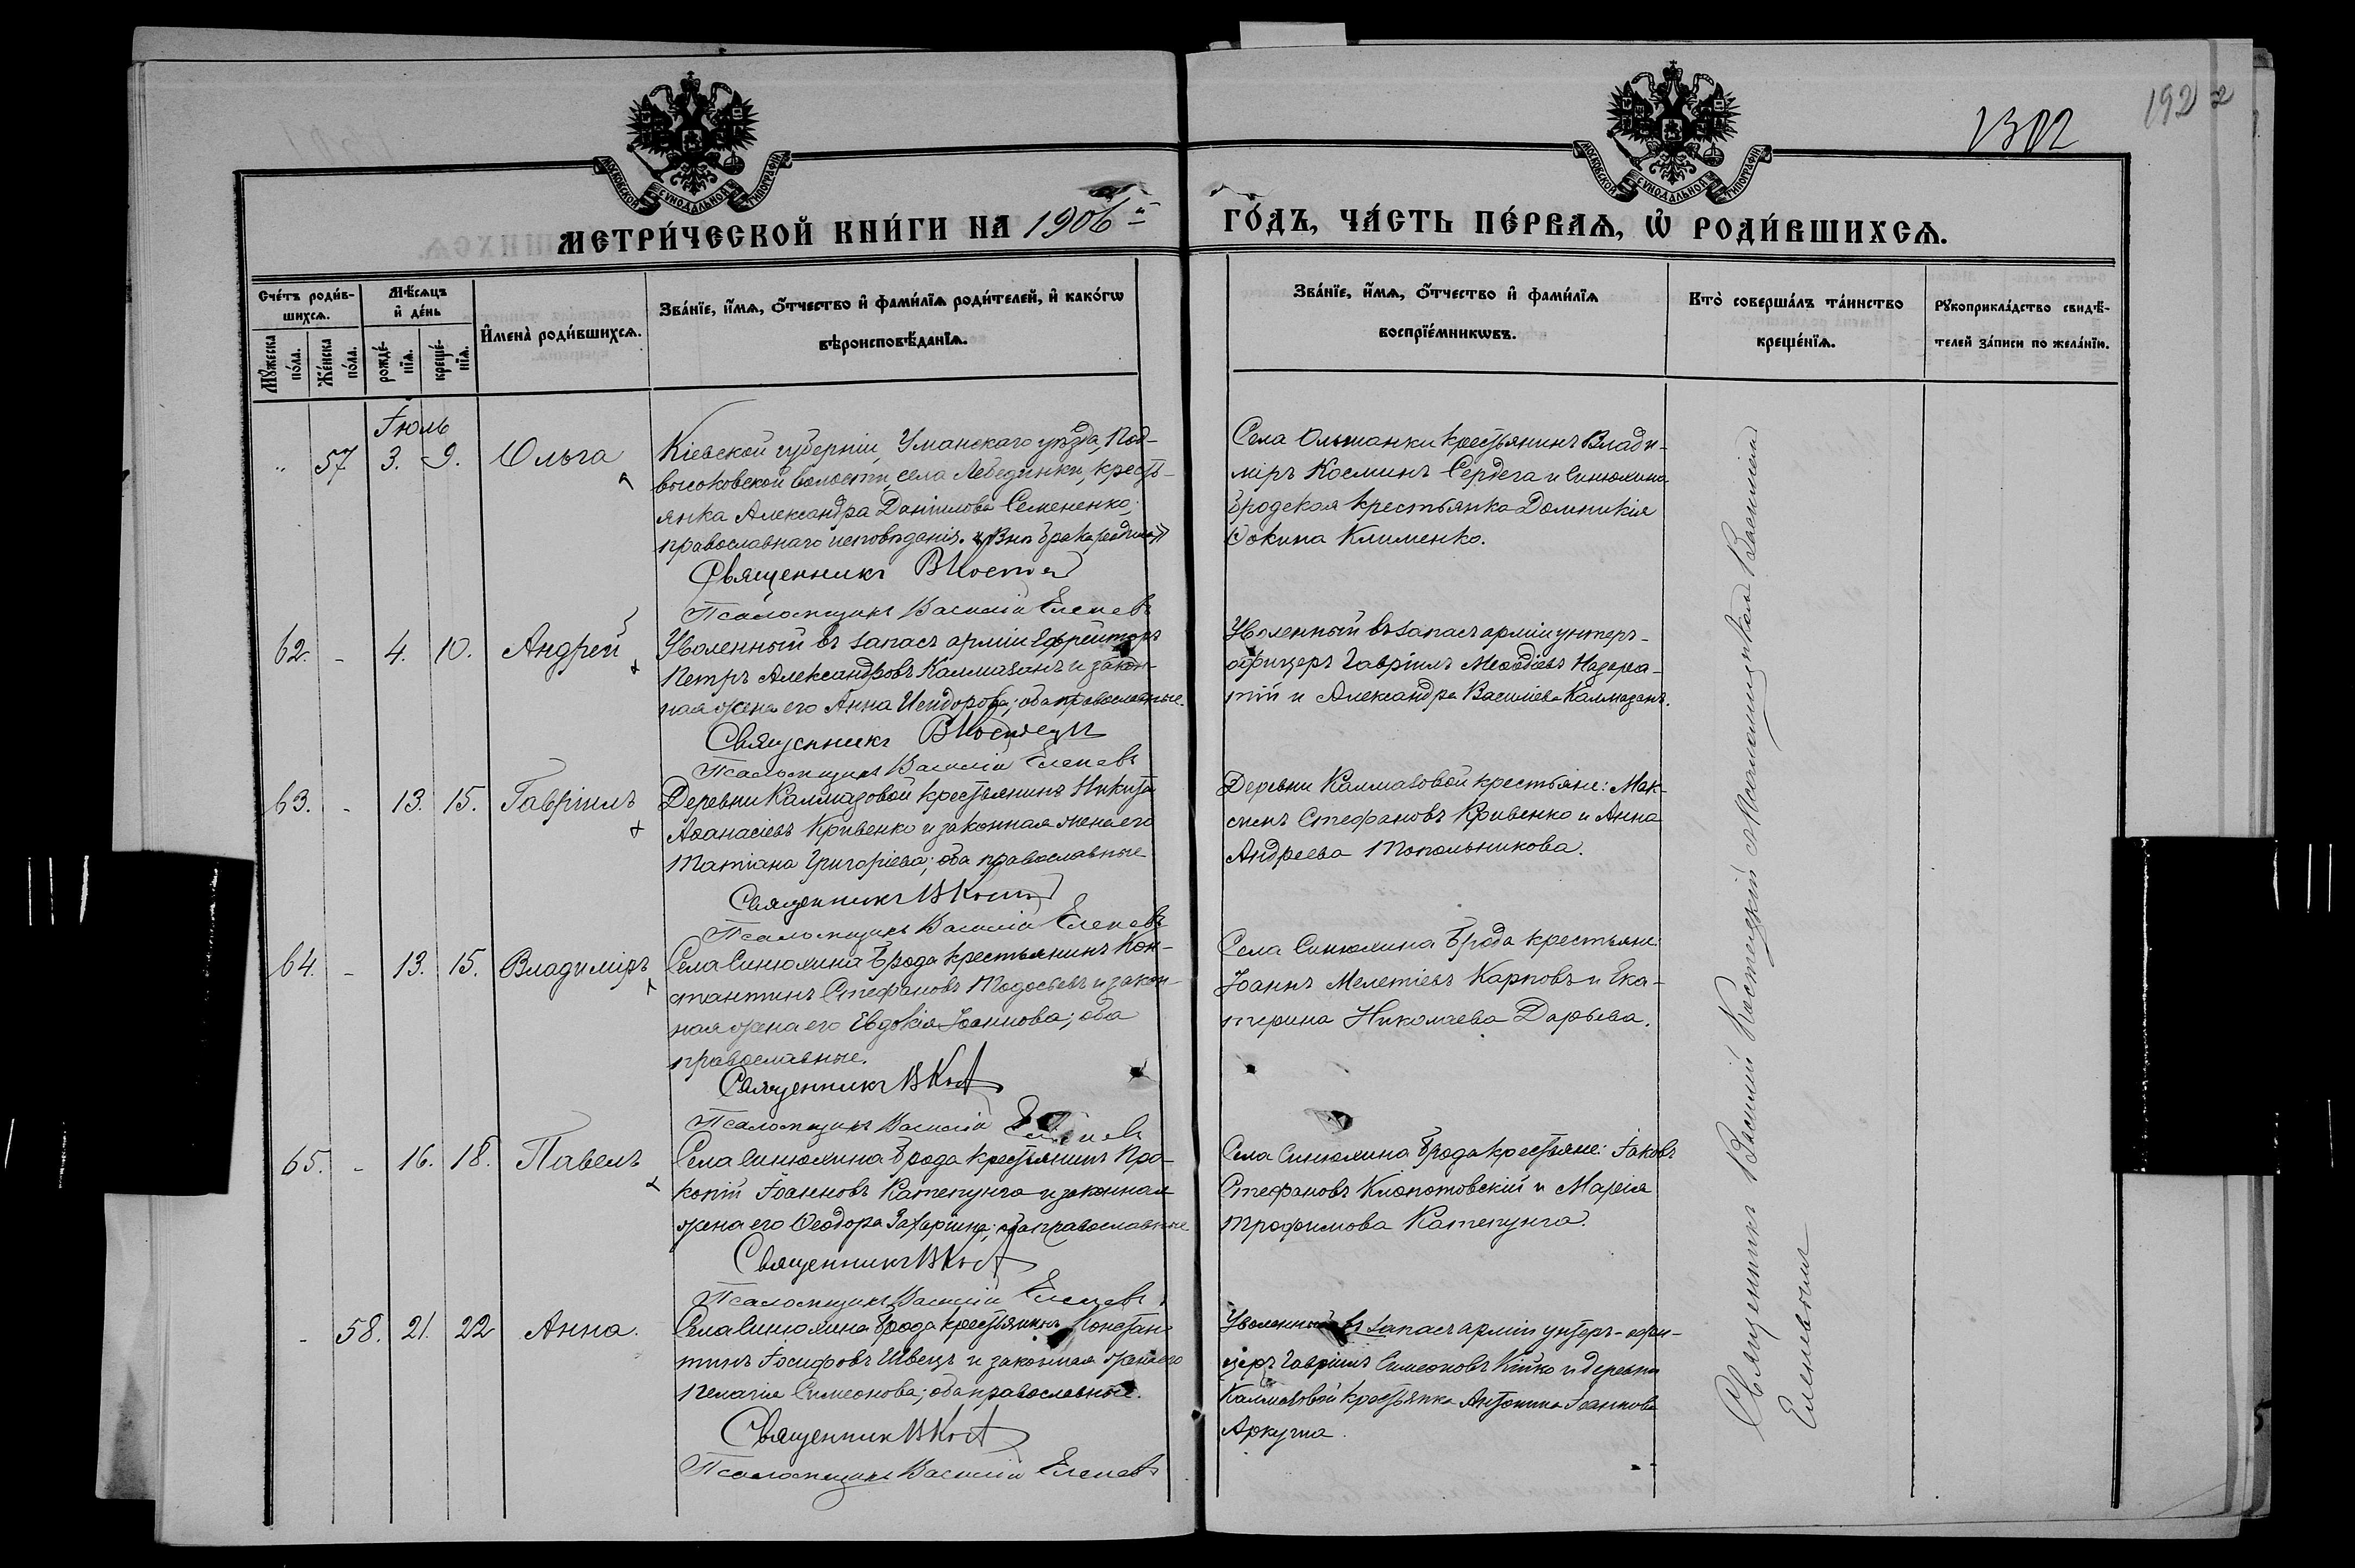 1302
192
2
МОСКОВСКОЙ СѴНОДАЛЬНОЙ ТИПОГРАФІИ
МОСКОВСКОЙ СѴНОДАЛЬНОЙ ТИПОГРАФІИ
МЕТРИ́ЧЕСКОЙ КНИ́ГИ НА 1906й
ГО́ДЪ, ЧА́СТЬ ПЕ́РВАѦ, Ѡ҆ РОДИ́ВШИХСѦ.
Сче́тъ роди́в-
шихсѧ.
Мꙋ́жеска по́ла.
Же́нска по́ла.
Мѣ́сѧцъ
и҆ де́нь
рожде́-
нїѧ.
креще́-
нїѧ.
И҆мена̀ роди́вшихсѧ.
Зва́нїе, и҆́мѧ, ѻ҆́тчество и҆ фами́лїѧ роди́телей, и҆ како́гѡ
вѣроисповѣ́данїѧ.
Зва́нїе, и҆́мѧ, ѻ҆́тчество и҆ фами́лїѧ
воспрїе́мникѡвъ.
Кто̀ соверша́лъ та́инство
креще́нїѧ.
Рꙋкоприкла́дство свидѣ́-
телей за́писи по жела́нїю.
Іюль
" 57 3. 9. Ольга
Кіевской губерніи, Уманскаго уѣзда, Под-
высоковской волости, села Лебединки, кресть-
янка Александра Даніилова Семененко,
православнаго исповѣданія. Внѣ брака
Священникъ
Псаломщикъ Василій Еленевъ
Села Ольшанки крестьянинъ Влади-
міръ Косминъ Сердега и Синюхино
Бродская крестьянка Домникія
Фокина Клименко.
62. - 4. 10. Андрей
Уволенный въ запасъ арміи Ефрейторъ
Петръ Александровъ Калмазанъ и закон-
ная жена его Анна Исидорова; оба православные.
Священникъ
Псаломщикъ Василій Еленевъ
Уволенный въ запасъ арміи унтеръ-
офицеръ Гавріилъ Меѳодіевъ
и Александра Василіева Калмазанъ.
63. - 13. 15. Гавріилъ
Деревни Калмазовой крестьянинъ Никита
Аѳанасіевъ Кривенко и законная жена его
Татіана Григоріева; оба православные
Священникъ
Псаломщикъ Василій Еленевъ
Деревни Калмазовой крестьяне: Мак-
симъ Стефановъ Кривенко и Анна
Андреева Топольникова.
64. - 13. 15. Владиміръ
Села Синюхина Брода крестьянинъ Кон-
стантинъ Стефановъ Тодосьевъ и закон-
ная жена его Евдокія Іоаннова; оба
православные.
Священникъ
Псаломщикъ Василій Еленевъ
Села Синюхина Брода крестьяне:
Іоаннъ Мелетіевъ Карповъ и Ека-
терина Николаева Дарьева.
65. - 16. 18. Павелъ
Села Синюхина Брода крестьянинъ Про-
копій Іоанновъ Катепунга и законная
жена его Ѳеодора Захаріина; оба православные
Священникъ
Псаломщикъ Василій Еленевъ
Села Синюхина Брода крестьяне: Іаковъ
Стефановъ Клопотовскій и Марія
Трофимова Катепунга.
- 58. 21. 22 Анна.
Села Синюхина Брода крестьянинъ Констан-
тинъ Іосифовъ Швецъ и законная жена его
Пелагія Симеонова; оба православные.
Священникъ
Псаломщикъ Василій Еленевъ
Уволенный въ запасъ арміи унтеръ-офи-
церъ Гавріилъ Симеоновъ Кійко и деревни
Калмазовой крестьянка Антонина Іоаннова
Аркуша.
Священникъ Василій Костецкій Псаломщикъ Василій
Еленевъ